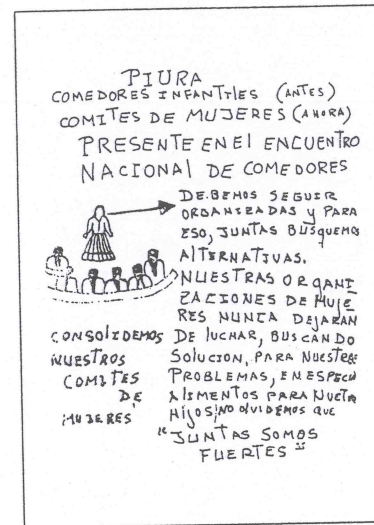 PIURA
COMEDORES INFANTILES (ANTES)
COMITES DE MUJERES (AHORA)
PRESENTE EN EL ENCUENTRO
NACIONAL DE COMEDORES
DEBEMOS SEGUIR
ORGANIZADAS y PARA
ESO, JUNTAS BUSQUEMOS
AlTERNATIVAS.
NUESTRAS ORGANI
ZACIONES DE MUJE
RES NUNCA DEJARAN
DE lUCHAR, BUSCANDO
SOlUCION, PARA NUESTROS
PROBLEMAS, EN ESPECIAl
AlIMENTOS PARA NUESTROS
HIJOS; NO OlVIDEMOS QUE
"JUNTAS SOMOS
FUERTES"
CONSOlIDEMOS
NUESTROS
COMITES
DE
MUJERES